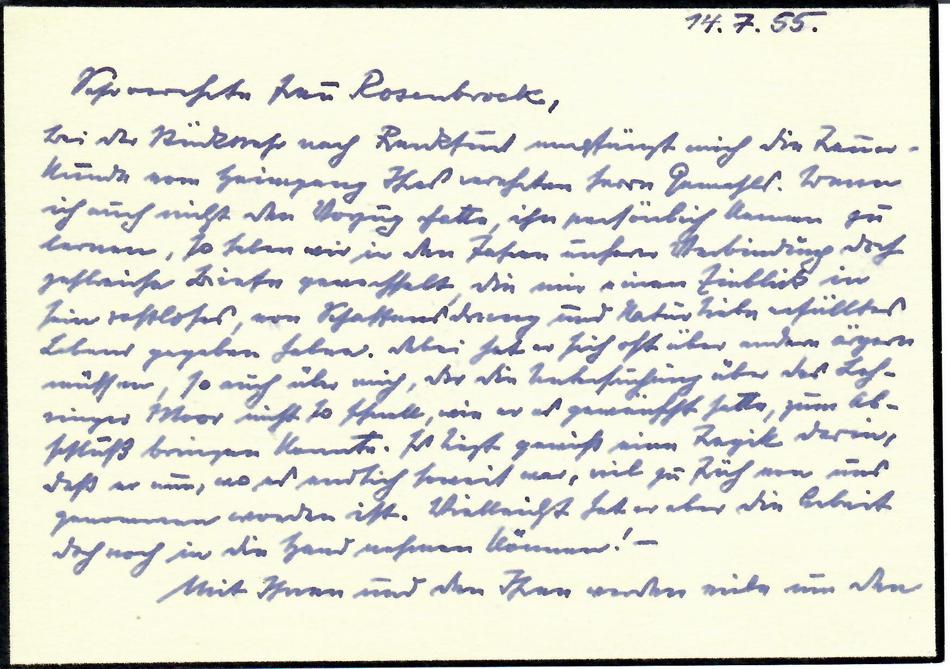 14.7.55.
Sehr verehrte Frau Rosenbrock,
Bei der Rückkehr nach Frankfurt empfängt mich die Trauer-
kunde vom Heimgang Ihres verehrten Herrn Gemahls. Wenn
ich auch nicht den Vorzug hatte, ihn persönlich kennen zu
lernen, so haben wir in den Jahren unserer Verbindung doch
zahlreiche Briefe gewechselt, die mir einen Einblick in
sein rastloses, von Schaffensdrang und Naturliebe erfülltes
Leben gegeben haben. Dabei hat er sich oft über andere ärgern
müssen, so auch über mich, der die Untersuchung über das Leh-
ringer Moor nicht so schnell, wie er es gewünscht hatte, zum Ab-
schluß bringen konnte. Es liegt gewiß eine Tragik darin,
daß er nun, wo es endlich soweit war, viel zu früh von uns
genommen worden ist. Vielleicht hat er aber die Arbeit
doch noch in die Hand nehmen können! —
Mit Ihnen und den Ihren werden viele um den